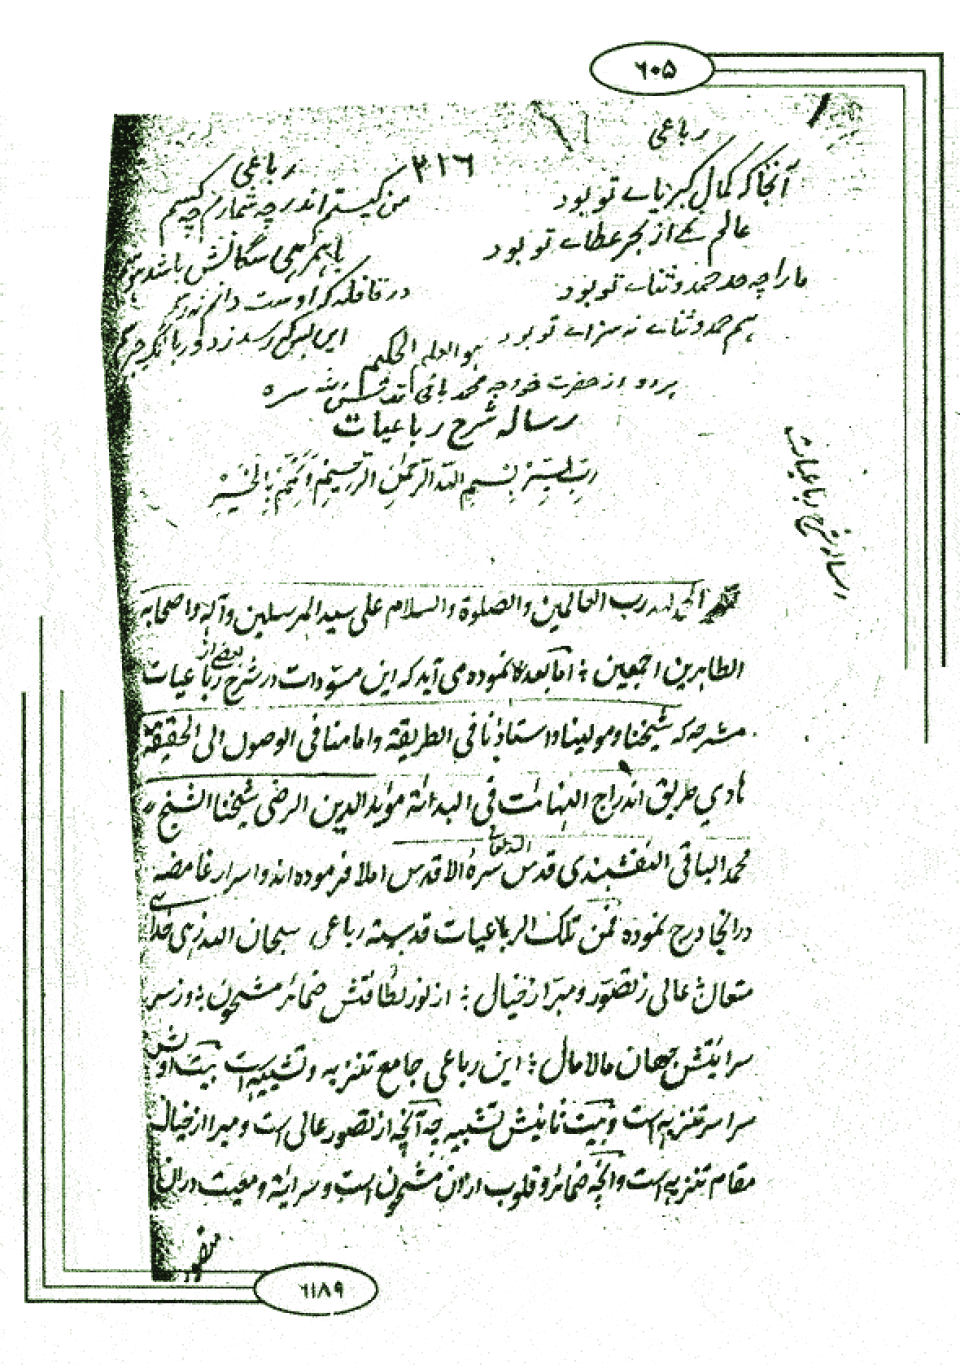 ۶۰۵
رباعی
آنجا که کمال کبریاے تو بود
عالم نمے از بحر عطاے تو بود
ما را چه حد حمد و ثناے تو بود
هم حمد و ثناے تو سزاے تو بود
۳۱۶
رباعی
من کیستم اندر چه شمارم چه کسم
با همرهی سگانش باشد هوسم
در قافله که اوست دانم نرسم
این بس که رسد ز دور بانگ جرسم
هو العلیم الحکیم
هر دو از حضرت خواجه محمد باقی قدس سره
رساله شرح رباعیات
رب یسر بسم الله الرحمن الرحیم تمم بالخیر
رساله شرح رباعیات
الحمد لله رب العالمین والصلوة والسلام علی سید المرسلین وآله واصحابه
الطاهرین اجمعین ؛ اما بعد نموده می آید که این مسودات در شرح بعضے از رباعیات
مشرحه که شیخنا ومولینا واستاذنا فی الطریقة وامامنا فی الوصول الی الحقیقة
هادي طریق اندراج النهایات فی البدایة موید الدین الرضی شیخنا الشیخ
محمد الباقی النقشبندی قدس الله تعالی سره الاقدس املا فرموده اند و اسرار غامضه
در انجا درج نموده فمن تلک الرباعیات قدسیه رباعی سبحان الله زهی خداے
متعال ؛ عالی ز تصور و مبرا ز خیال ؛ از نور لطافتش ضمائر مشحون ؛ وز سر
سرایتش جهان مالامال ؛ این رباعی جامع تنزیه و تشبیه است بیت اولش
سراسر تنزیه است و بیت ثانیش تشبیه چه آنچه از تصور عالی است و مبرا از خیال
مقام تنزیه است و آنچه ضمائر و قلوب از ان مشحون است و سرایة و معیت در ان
۶۱۸۹